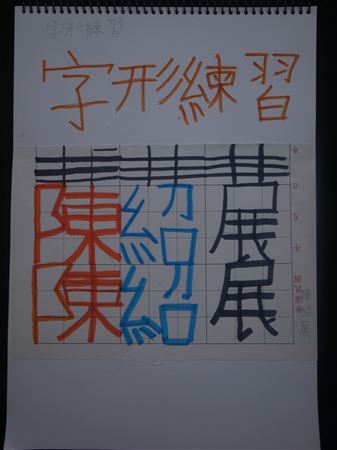 字形練習
字形練習
陳紹展
陳紹展